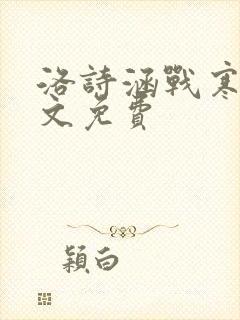 洛詩涵戰寒
文免費
穎白